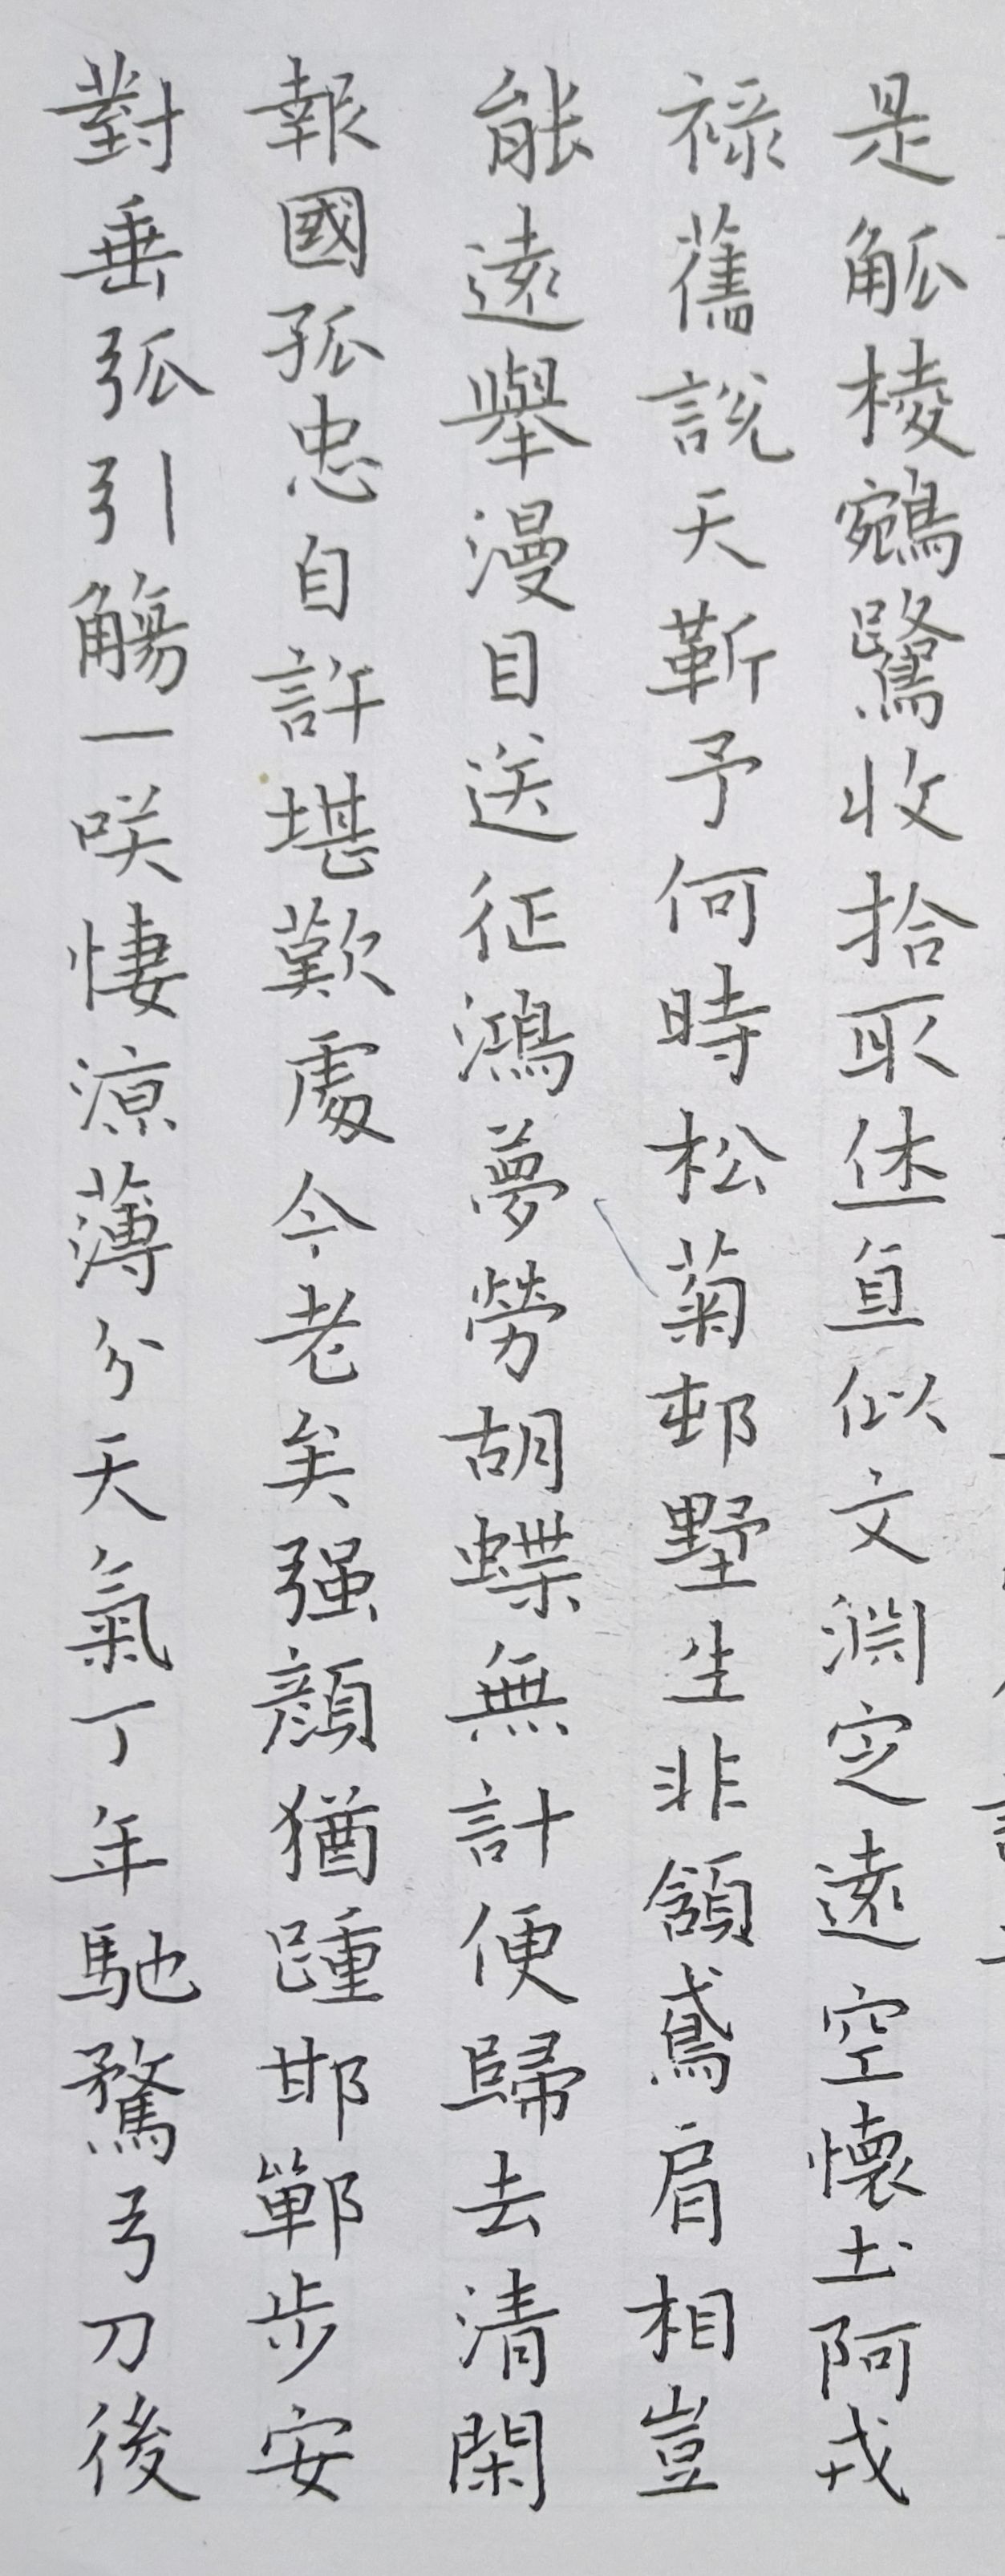 是觚棱鵷鷺收拾取坐直似文淵定遠空懷土阿戎
祿舊說天靳予何時松菊邨墅生非頷鳶肩相豈
能遠舉漫目送征鴻夢勞胡蝶無計便歸去清閑
報國孤忠自許堪歎處今老矣强顏猶踵邯鄲步安
對垂弧引觴一咲悽涼薄分天氣丁年馳騖弓刀後